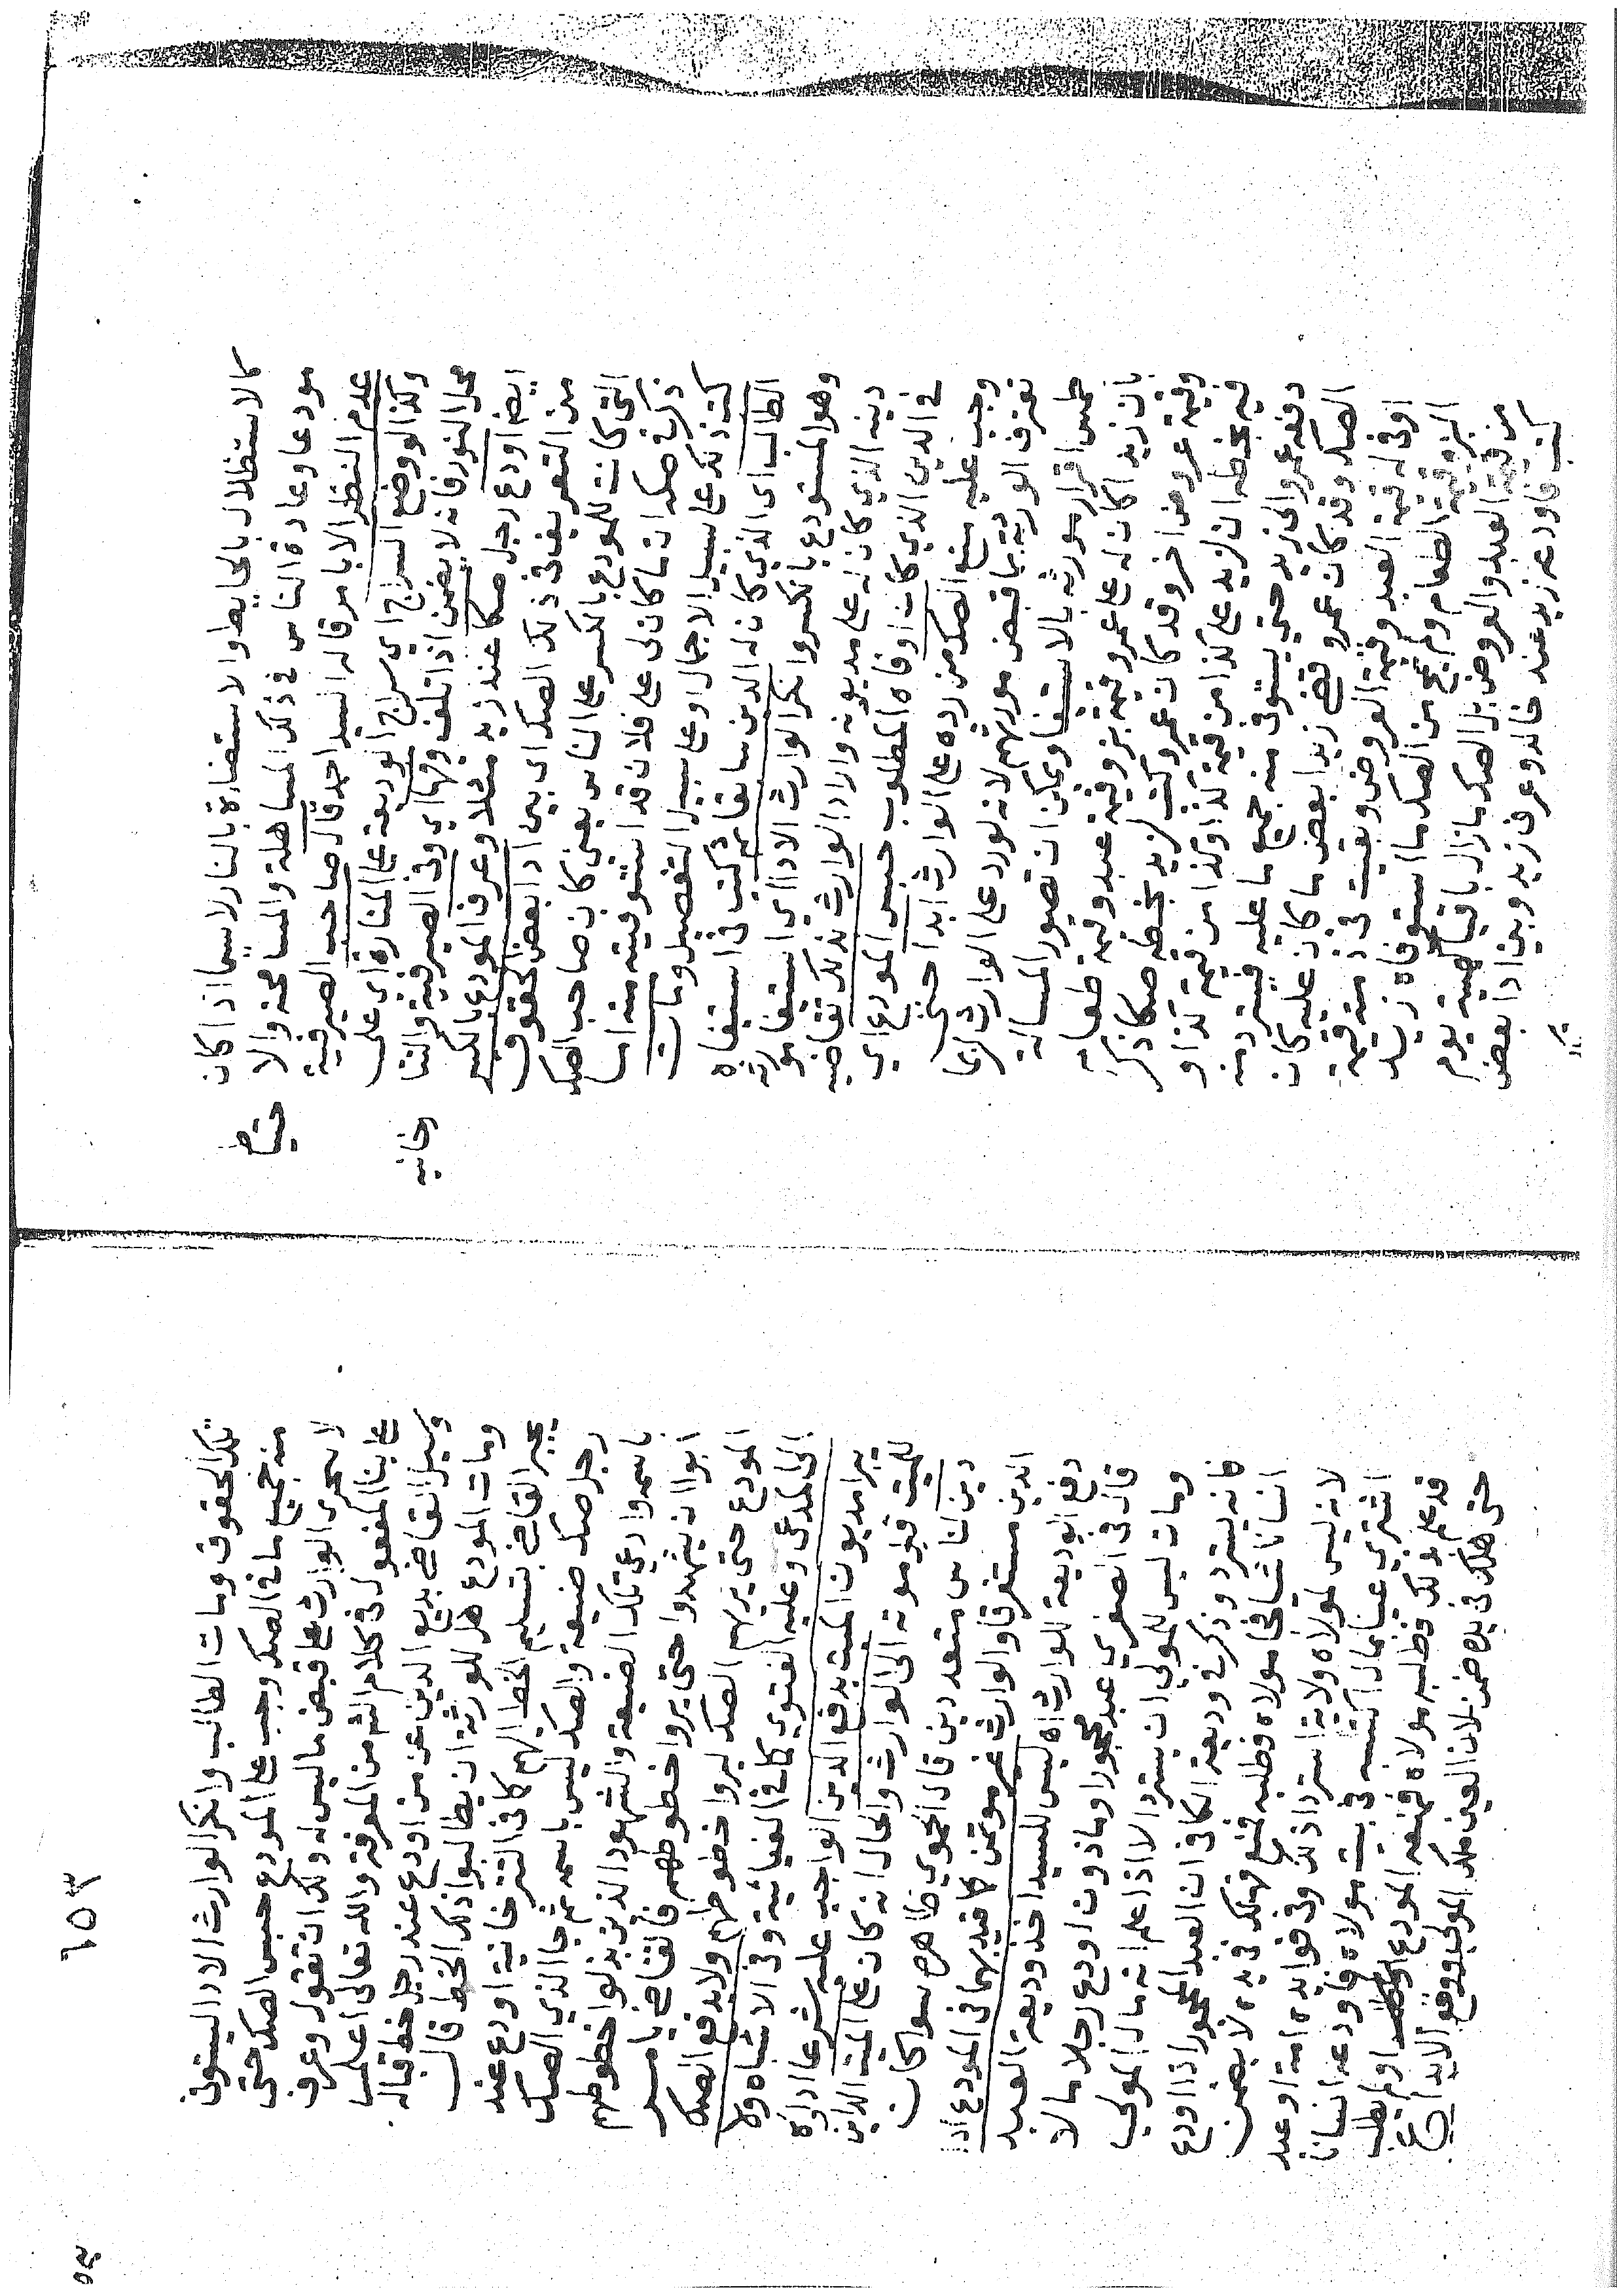 كالاستظلال بالحايط والاستضاءة بالنار لاسيما اذا كان
مودعا وعادة الناس في ذلك المساهلة والمسامحة والا
عدم النظر الا بامر قاله السيد احمد قال صاحب الصيرفية
وكذا لو وضع السراج اي سراج الوديعة على المنارة اي على
محل النور فانه لا يضمن اذا تلف وفيها اي وفي الصيرفية والتتا
رخانيه
ايضا اودع رجل صكا عند زيد مثلا وعرف المودع بالكسر
من التعريف في ذلك الصك اي بين ادا بعض الحقوق
التي كانت للمودع بالكسر على الناس يعني كان صاحب الصك
ذكر في صكه ان ما كان لي على فلان قد استوفيته منه اما
كتب ذلك على سبيل الاجمال او على سبيل التفصيل ومات
الطالب اي الذي كان له الدين سابقا ثم كتب في استيفاه
وهو المستودع بالكسر وانكر الوارث الادا اي استيفا مورثه
دينه الذي كان له على مديونه واراد الوارث بذلك تقاضيه
في الدين الذي كان اوفاه المطلوب حبس المودع اي
وجب عليه منع الصك من رده على الوارث ابدا حتى
يعترف الورثة بما قبض مورثهم لانه لو رد على الوارث لربما
طمس اقرار مورثه بالاستيفا ويمكن ان تصوير المسالة
بان زيدا كان له على عمرو قيمة بز وقيمة عبد وقيمة طعام
وقيمة عروض اخر وقد كان عمرو كتب لزيد بخطه صكا ذكر
فيه بخطه ان لزيد علي كذا من قيمة كذا وكذا من قيمة كذا و
دفعه عمرو الى زيد حتى يستوفي منه جميع ما عليه فيسترد منه
الصك وقد كان عمرو قضى زيدا بعض ما كان عليه كان
اوفى له قيمة العبد وقيمة العروض وبقيت في ذمته قيمة
البز وقيمة الطعام ولم يمح من الصك ما استوفاه زيد
من قيمة العبد والعروض بل الصك ما زال باقيا كهيئته يوم
كتب فاودعه زيد عند خالد وعرف زيد وبين ادا بعض
تلك
١٥٣
تلك الحقوق ومات الطالب وانكر الوارث الادا ليستوفي
منه جميع ما في الصك وجب على المودع حبس الصك حتى
لا يتجرى الوارث على قبض ما ليس له ولك ان تقول وعرف
على بنا المفعول في كلام الشم من المعرفة والله تعالى اعلم
وسيل القاضي بديع الدين عن من اودع عند رجل خط قباله
ومات المودع هل للورثة ان يطالبوا ذلك الخط قال
يجبر القاضي بتسليم الخط اليهم كما في التترخانية اودع عند
رجل صك ضيعة والصك ليس باسمه ثم جا الذي الصك
باسمه وادعى تلك الضيعة والشهود الذين بذلوا خطوطهم
ابوا ان يشهدوا حتى يروا خطوطهم فالقاضي يامر
المودع حتى يريهم الصك ليروا خطوطهم ولا يدفع الصك
الى المدعي وعليه الفتوى كما في الغياثية وفي الاشباه ولا
يبرا مديون الميت بدفع الدين الواجب عليه شرعا اداوه
للميت قبل موته الى الوارث والحال انه كان على الميت الداين
دين لناس متعددين قال الحموي ظاهره سوا كان
الدين مستغرقا والوارث غير موتمن كما قيد بهما في المودع اذا
دفع الوديعة للوارث اه ليس للسيد اخذ وديعة العبد
قال في الصغرى عبد محجورا وماذون اودع رجلا مالا
ومات ليس للمولى ان يسترد الا اذا علم انه مال المولى
فانه يسترد وذكر في وديعة الكافي ان العبد المحجور اذا اودع
انسانا شيا فجا مولاه وطلبه فمنع فهلك في يده لا يضمن
لانه ليس لمولاه ولاية استرداد ذلك وفي فوايده امة او عبد
اشترى عينا بمال اكتسبه في بيت مولاه فاودعه انسانا
قد علم بذلك فطلبه مولاه فمنعه المودع او لم يطلب
حتى هلك في يده ضمن لان العين ملك المولى ووقع الايداع